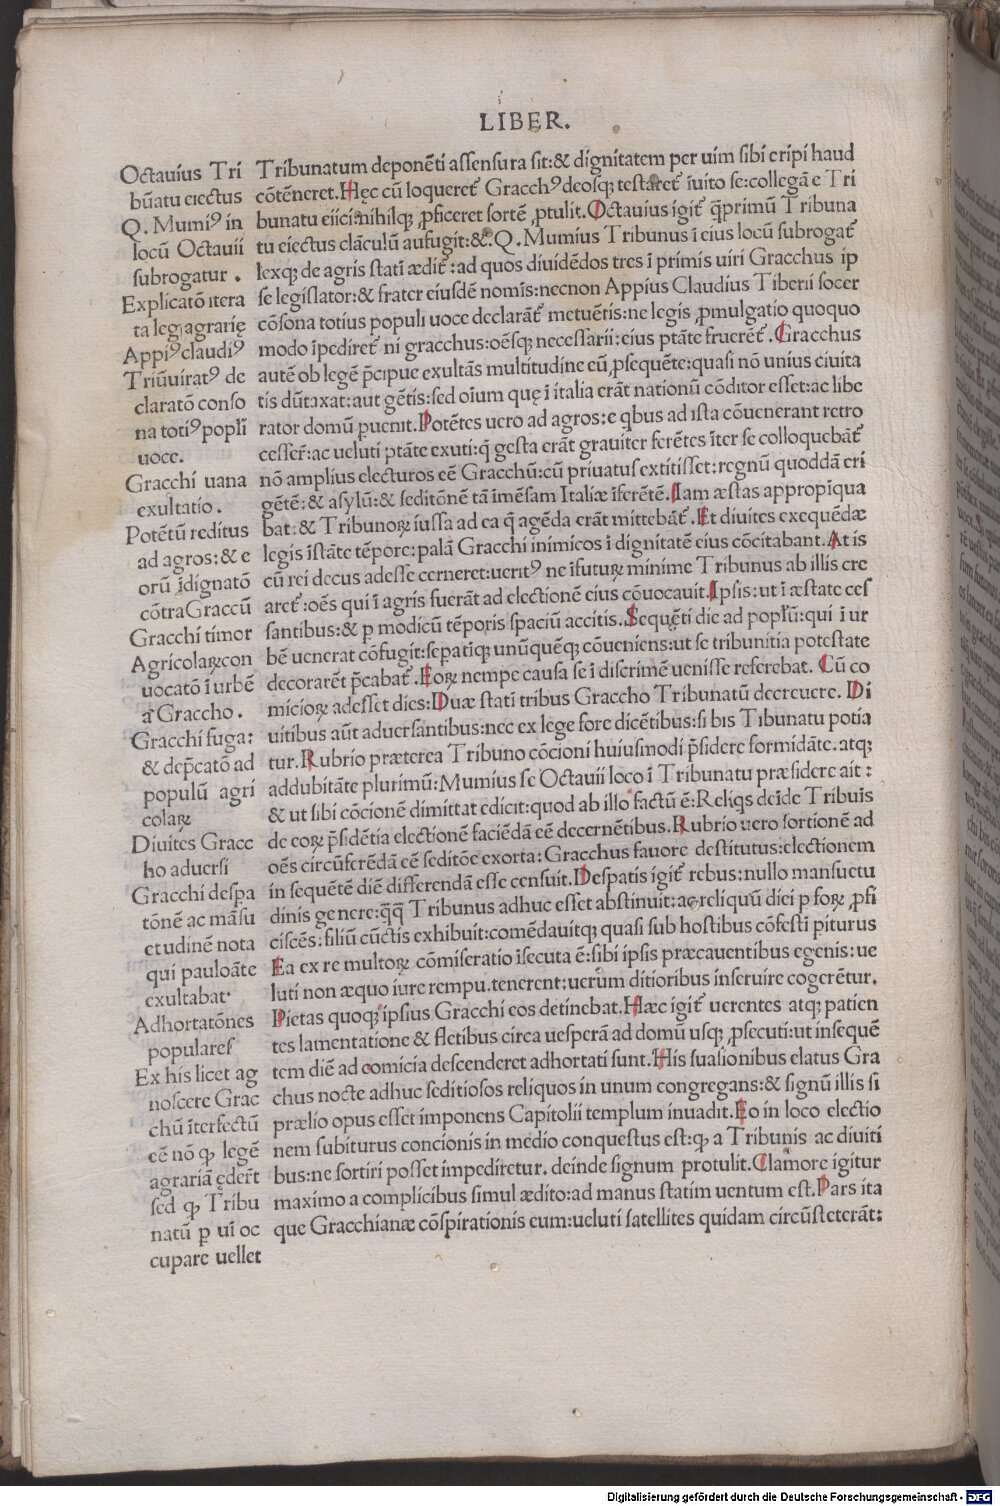 LIBER.
Octauius Tri
bũatu eiectus
Q. Mumiꝰ in
locũ Octauii
subrogatur .
Explicatõ itera
ta leg̃ agrarię
Appiꝰ claudiꝰ
Triũuiratꝰ de
claratõ conso
na totiꝰ popl̃i
uoce.
Gracchi uana
exultatio .
Potẽtũ reditus
ad agros: & e
orũ ĩdignatõ
cõtra Graccũ
Gracchi timor
Agricolaꝝ con
uocatõ ĩ urbẽ
a Graccho .
Gracchi fuga:
& dep̃catõ ad
populũ agri
colaꝝ
Diuites Gracc
ho aduersi
Gracchi despa
tõnẽ ac mãsu
etudinẽ nota
qui pauloãte
exultabat
Adhortatõnes
populares
Ex his licet ag
noscere Grac
chũ ĩterfectũ
eẽ nõ ꝙ legẽ
agrariã ędeȓt
sed ꝙ Tribu
natũ ꝑ uĩ oc
cupare uellet
Tribunatum deponẽti assensura sit: & dignitatem per uim sibi eripi haud
cõtẽneret. Hęc cũ loqueret̃ Gracchꝰ deosqꝫ testaret̃ ĩuito se: collegã e Tri
bunatu eiici: nihilqꝫ ꝓficeret sortẽ ꝓtulit. Octauius igit̃ q̃primũ Tribuna
tu eiectus clãculũ aufugit: &. Q. Mumius Tribunus ĩ eius locũ subrogat̃
lexqꝫ de agris statĩ ædit̃: ad quos diuidẽdos tres ĩ primis uiri Gracchus ip
se legislator: & frater eiusdẽ nomĩs: necnon Appius Claudius Tiberii socer
cõsona totius populi uoce declarãt̃ metuẽtis: ne legis ꝓmulgatio quoquo
modo ĩpediret̃ ni gracchus: oẽsqꝫ necessarii: eius ptãte fruerẽt̃. Gracchus
autẽ ob legẽ p̃cipue exultãs multitudine eũ ꝓsequẽte: quasi nõ unius ciuita
tis dũtaxat: aut gẽtis: sed oĩum quę ĩ italia erãt nationũ cõditor esset: ac libe
rator domũ ꝑuenit. Potẽtes uero ad agros: e qbus ad ista cõuenerant retro
cesser̃: ac ueluti ptãte exuti: q̃ gesta erãt grauiter ferẽtes ĩter se colloquebãt̃
nõ amplius electuros eẽ Gracchũ: cũ priuatus extitisset: regnũ quoddã eri
gẽtẽ: & asylũ: & seditõnẽ tã imẽsam Italiæ ĩferẽtẽ. Iam æstas appropĩqua
bat: & Tribunoꝝ iussa ad ea q̃ agẽda erãt mittebãt̃. Et diuites exequẽdæ
legis ĩstãte tẽpore: palã Gracchi inimicos ĩ dignitatẽ eius cõcitabant. At is
cũ rei decus adesse cerneret: ueritꝰ ne ĩfuturꝝ minime Tribunus ab illis cre
aret̃: oẽs qui ĩ agris fuerãt ad electionẽ eius cõuocauit. Ipsis: ut ĩ æstate ces
santibus: & ꝑ modicũ tẽporis spaciũ accitis. Sequẽti die ad popl̃ũ: qui ĩ ur
bẽ uenerat cõfugit: sepatiqꝫ unũquẽqꝫ cõueniens: ut se tribunitia potestate
decorarẽt p̃cabat̃. Eoꝝ nempe causa se ĩ discrimẽ uenisse referebat. Cũ co
micioꝝ adesset dies: Duæ statĩ tribus Graccho Tribunatũ decreuere. Di
uitibus aũt aduersantibus: nec ex lege fore dicẽtibus: si bis Tibunatu potia
tur. Rubrio præterea Tribuno cõcioni huiusmodi p̃sidere formidãte. atqꝫ
addubitãte plurimũ: Mumius se Octauii loco ĩ Tribunatu præsidere ait :
& ut sibi cõcionẽ dimittat edicit: quod ab illo factũ ẽ: Reliqs deĩde Tribuĩs
de eoꝝ p̃sidẽtia electionẽ faciẽdã eẽ decernẽtibus. Rubrio uero sortionẽ ad
oẽs circũferẽdã eẽ seditõe exorta: Gracchus fauore destitutus: electionem
in sequẽtẽ diẽ differendã esse censuit. Despatis igit̃ rebus: nullo mansuetu
dinis genere: q̃q̃ Tribunus adhuc esset abstinuit: ac reliquũ diei ꝑ foꝝ ꝓfi
ciscẽs: filiũ cũctis exhibuit: comẽdauitqꝫ quasi sub hostibus cõfestĩ piturus
Ea ex re multoꝝ cõmiseratio ĩsecuta ẽ: sibi ipsis præcauentibus egenis: ue
luti non æquo iure rempu. tenerent: uerum ditioribus inseruire cogerẽtur.
Pietas quoqꝫ ipsius Gracchi eos detinebat. Hæc igit̃ uerentes atqꝫ patien
tes lamentatione & fletibus circa uesperã ad domũ usqꝫ ꝓsecuti: ut insequẽ
tem diẽ ad comicia descenderet adhortati sunt. His suasionibus elatus Gra
chus nocte adhuc seditiosos reliquos in unum congregans: & signũ illis si
prælio opus esset imponens Capitolii templum inuadit. Eo in loco electio
nem subiturus concionis in medio conquestus est: ꝙ a Tribunis ac diuiti
bus: ne sortiri posset impediretur. deinde signum protulit. Clamore igitur
maximo a complicibus simul ædito: ad manus statim uentum est. Pars ita
que Gracchianæ cõspirationis eum: ueluti satellites quidam circũsteterãt:
Digitalisierung gefördert durch die Deutsche Forschungsgemeinschaft - DFG